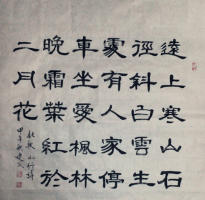 遠上寒山石
徑斜白雲生
處有人家停
車坐愛楓林
晚霜葉紅於
二月花
杜牧山行詩
甲午